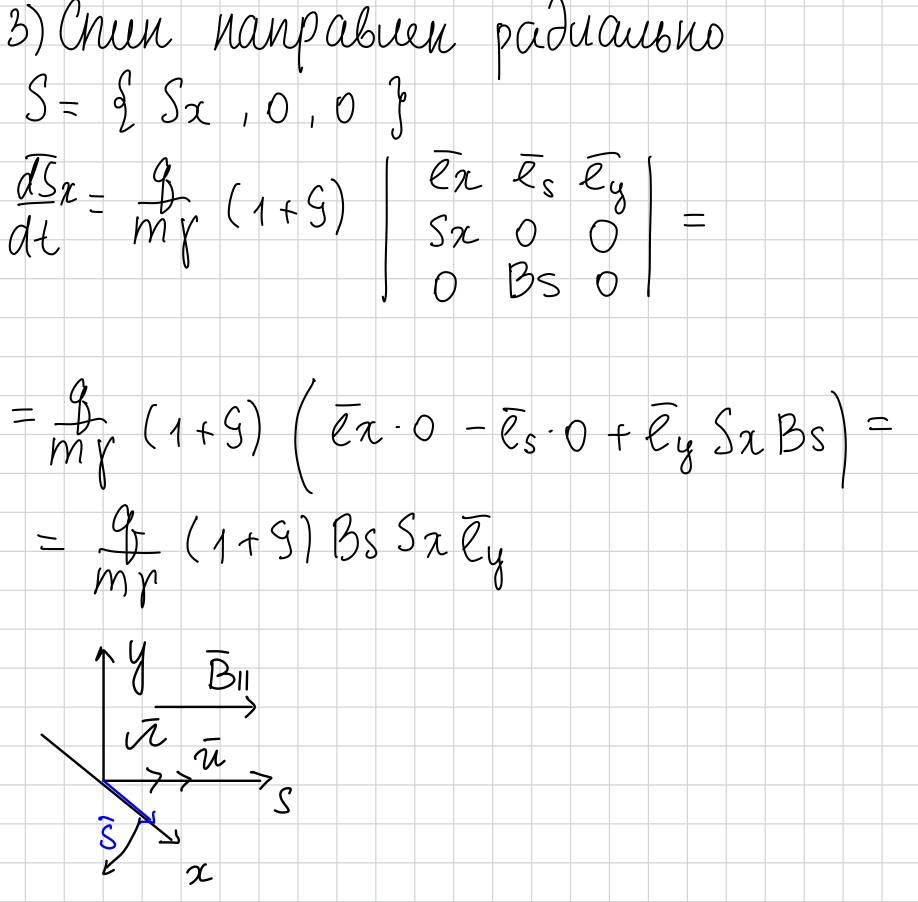 3) Спин направлен радиально
S = { Sx , 0 , 0 }
dS̄x/dt = q/mγ (1+G) | ēx ēs ēy | =
| Sx 0 0 |
| 0 Bs 0 |
= q/mγ (1+G) ( ēx · 0 - ēs · 0 + ēy Sx Bs ) =
= q/mγ (1+G) Bs Sx ēy
y
B̄||
ū
s
S̄
x